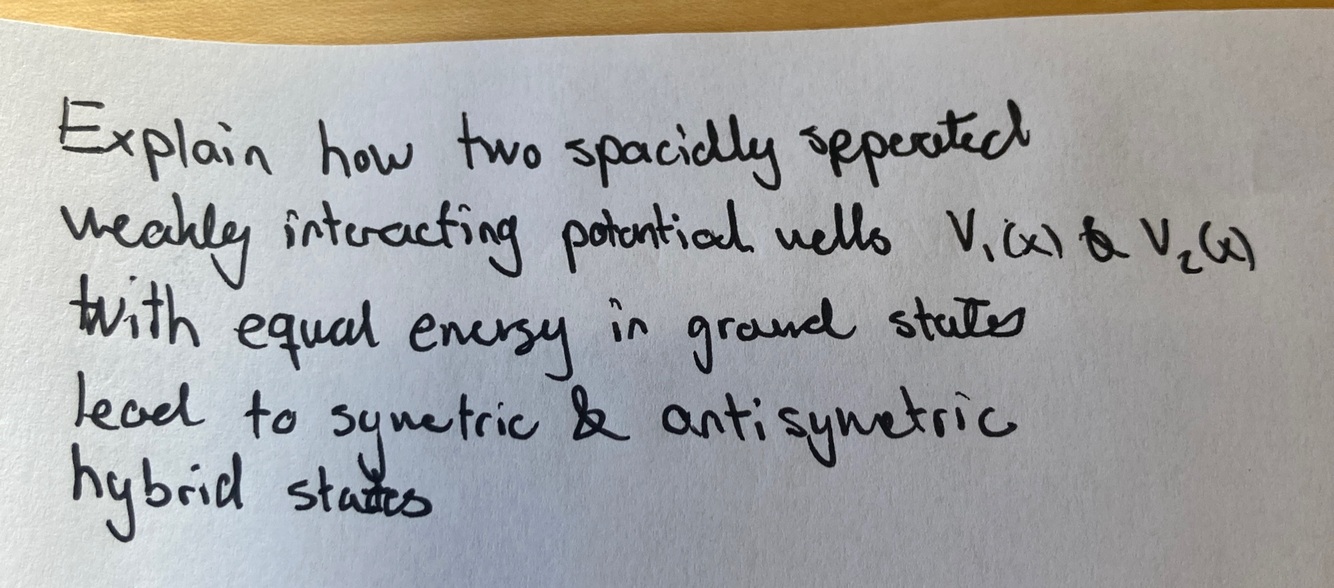 Explain how two spacially sepperated
weakly interacting potential wells V₁(x) & V₂(x)
with equal energy in ground states
lead to symetric & antisymetric
hybrid states